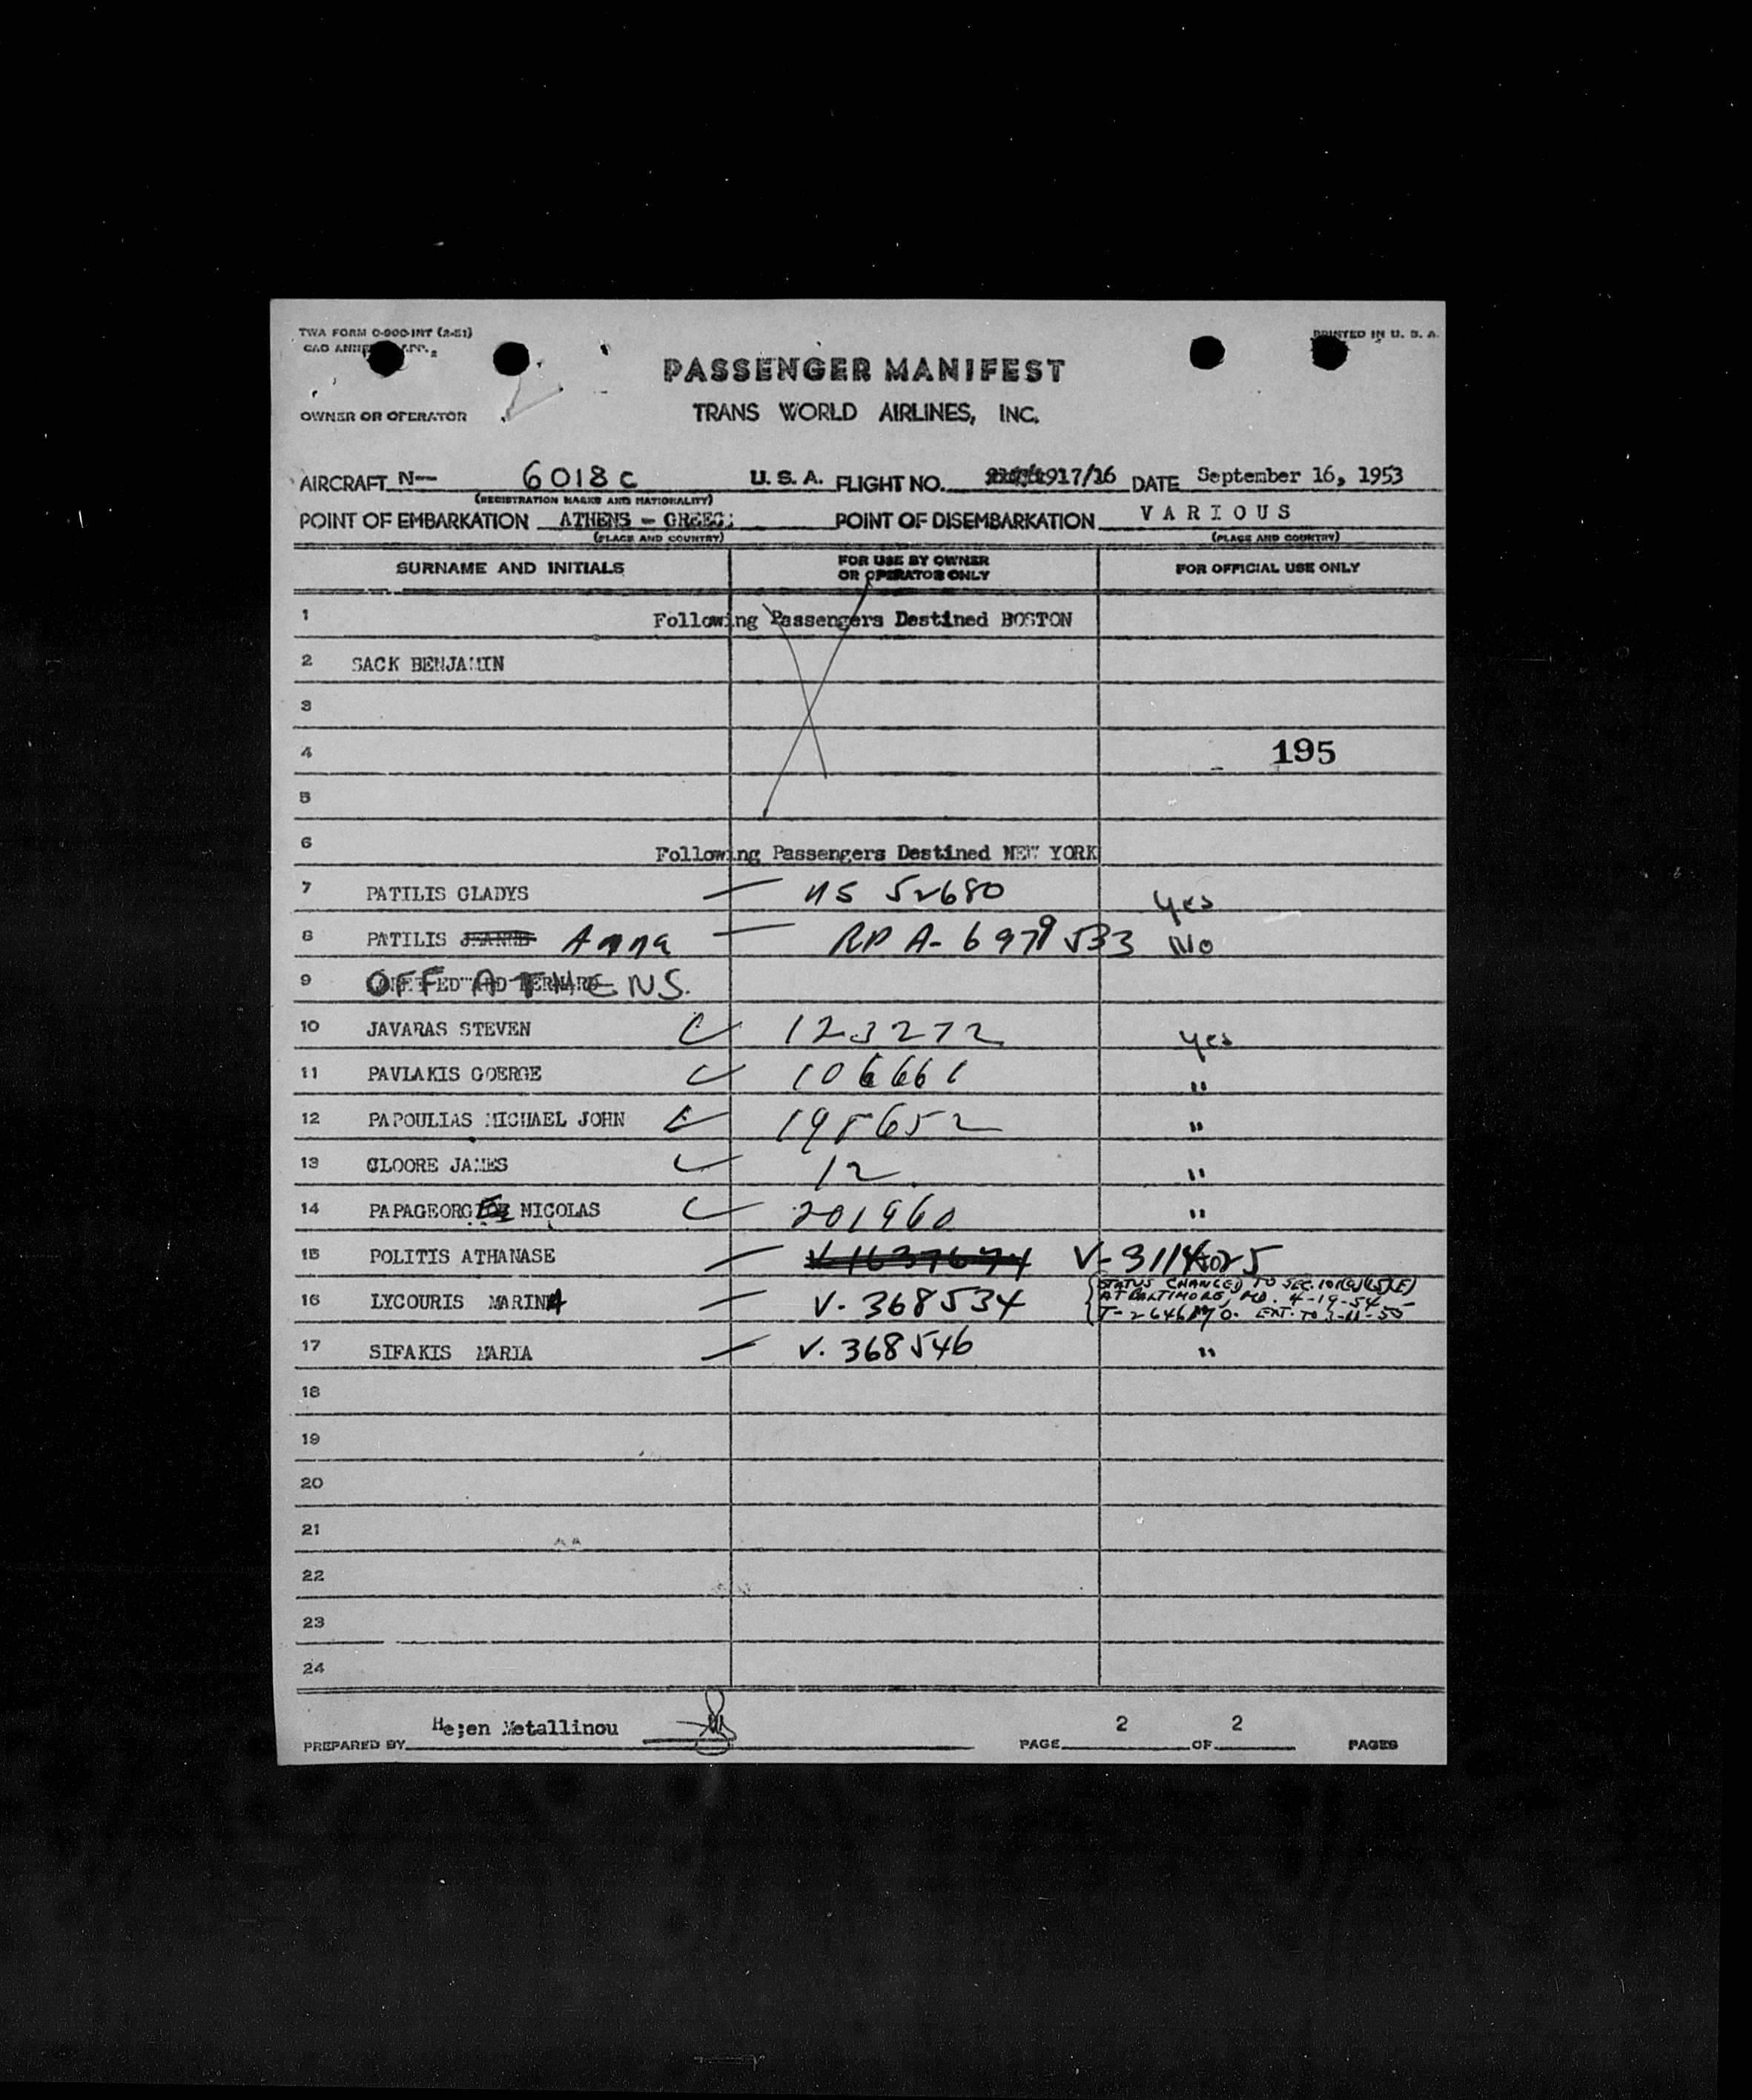 TWA FORM O-900-INT (2-51)
PRINTED IN U. S. A.
PASSENGER MANIFEST
OWNER OR OPERATOR
TRANS WORLD AIRLINES, INC.
AIRCRAFT N— 6018C U. S. A. FLIGHT NO. 917/16 DATE September 16, 1953
(REGISTRATION MARKS AND NATIONALITY)
POINT OF EMBARKATION ATHENS - GREECE POINT OF DISEMBARKATION VARIOUS
(PLACE AND COUNTRY) (PLACE AND COUNTRY)
SURNAME AND INITIALS FOR USE BY OWNER OR OPERATOR ONLY FOR OFFICIAL USE ONLY
1 Following Passengers Destined BOSTON
2 SACK BENJAMIN
3
4 195
5
6 Following Passengers Destined NEW YORK
7 PATILIS GLADYS — NS 52680 Yes
8 PATILIS Anna — RP A-6979533 No
9 OFF ATHENS.
10 JAVARAS STEVEN 123272 Yes
11 PAVLAKIS GOERGE 106661 "
12 PAPOULIAS MICHAEL JOHN 198652 "
13 GLOORE JAMES 12 "
14 PAPAGEORGE NICOLAS 201960 "
15 POLITIS ATHANASE — V-1637674 V-3114025
16 LYCOURIS MARINA — V. 368534 STATUS CHANGED TO SEC. 101(a)(15)(F)
AT BALTIMORE, MD. 4-19-54
EXT. TO
17 SIFAKIS MARIA — V. 368546 "
18
19
20
21
22
23
24
PREPARED BY He;en Metallinou PAGE 2 OF 2 PAGES